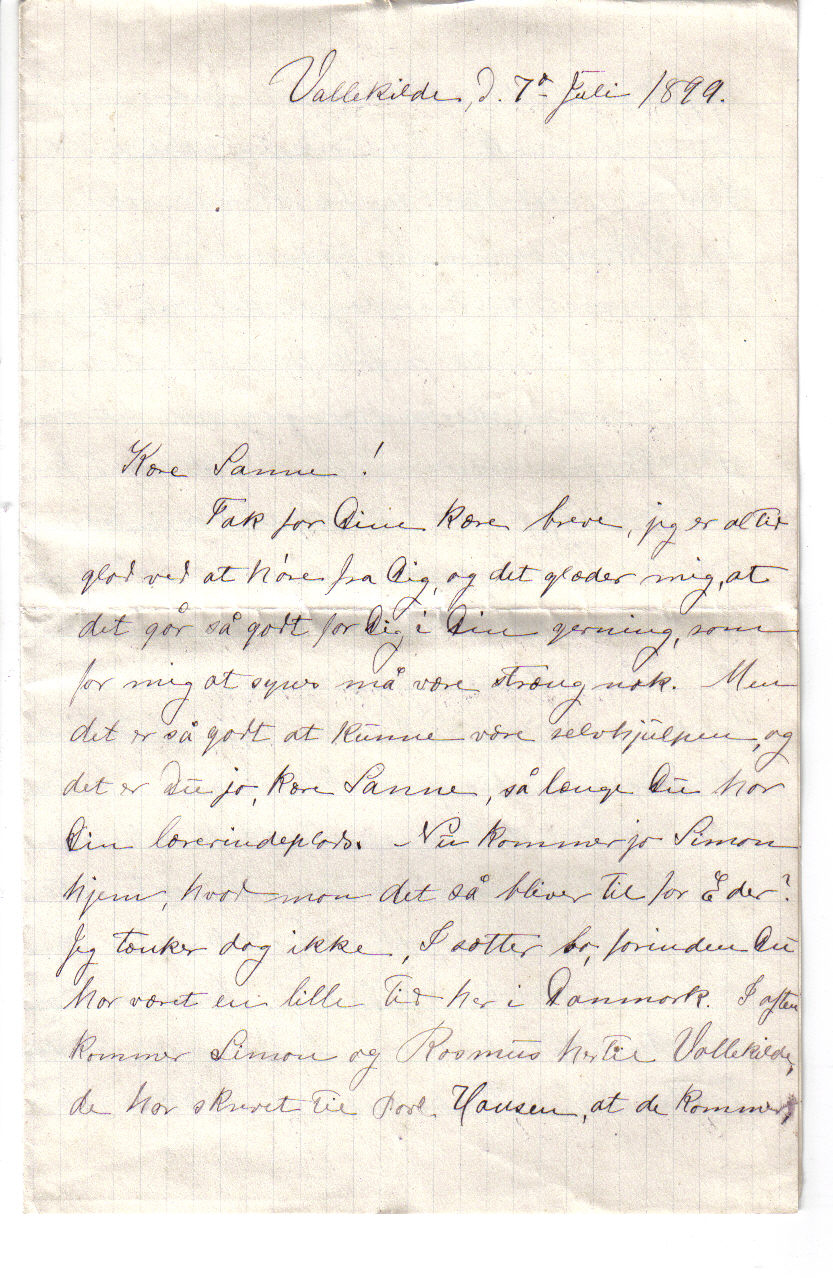 Vallekilde, d. 7d Juli 1899.
Kære Sanne!
Tak for Dine kære breve, jeg er altid
glad ved at høre fra Dig, og det glæder mig, at
det går så godt for Dig i Din gerning, som
for mig at synes må være streng nok. Men
det er så godt at kunne være selvhjulpen, og
det er Du jo, kære Sanne, så længe Du har
Din lærerindeplads. Nu kommer jo Simon
hjem, hvad mon det så bliver til for Eder?
Jeg tænker dog ikke, I sætter bo, forinden Du
har været en lille tid her i Danmark. I aften
kommer Simon og Rasmus hertil Vallekilde,
de har skrevet til Povl Hansen, at de kommer,